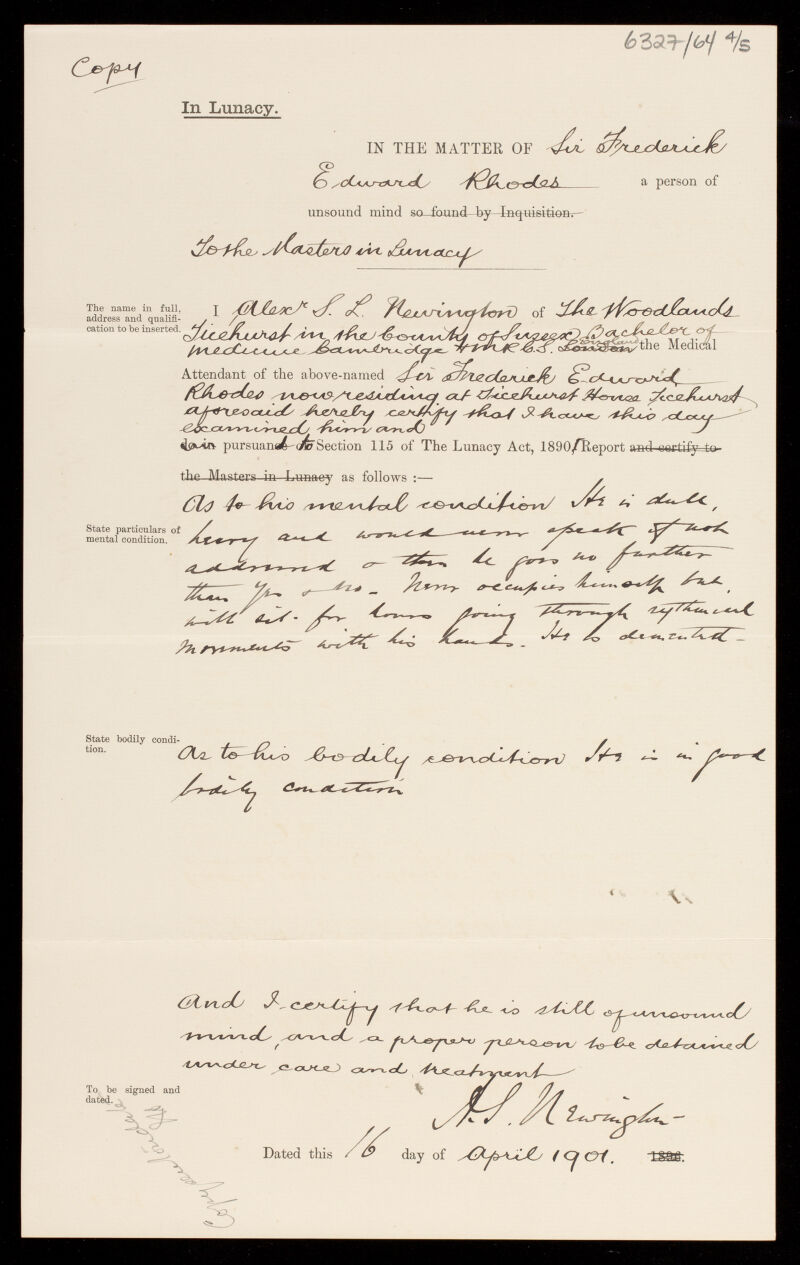 6327/64 4/5
Copy
In Lunacy.
IN THE MATTER OF Sir Frederick
Edward Rhodes a person of
unsound mind so found by Inquisition.
To the Masters in Lunacy
The name in full,
address and qualifi-
cation to be inserted.
I Alexr S. L. Newington of The Woodlands
Ticehurst in the County of Sussex Bachelor of
medicine Cambridge & M R C. S. London England the Medical
Attendant of the above-named Sir Frederick Edward
Rhodes now residing at Ticehurst House Ticehurst
aforesaid hereby certify that I have this day
examined him and
do in pursuant to Section 115 of The Lunacy Act, 1890, Report and certify to
the Masters in Lunacy as follows :—
State particulars of
mental condition.
As to his mental condition He is dull,
heavy and would never speak if not
addressed & then he goes no further
than Yes & No – Never occupies himself but
will sit for hours going through rythmical
movements with his hands. He is demented –
State bodily condi-
tion.
As to his bodily condition He is in good
bodily condition
And I certify that he is still of unsound
mind, and a proper person to be detained
under care and treatment
To be signed and
dated.
A. S. Newington
Dated this 16 day of April 1901. 189
Copy